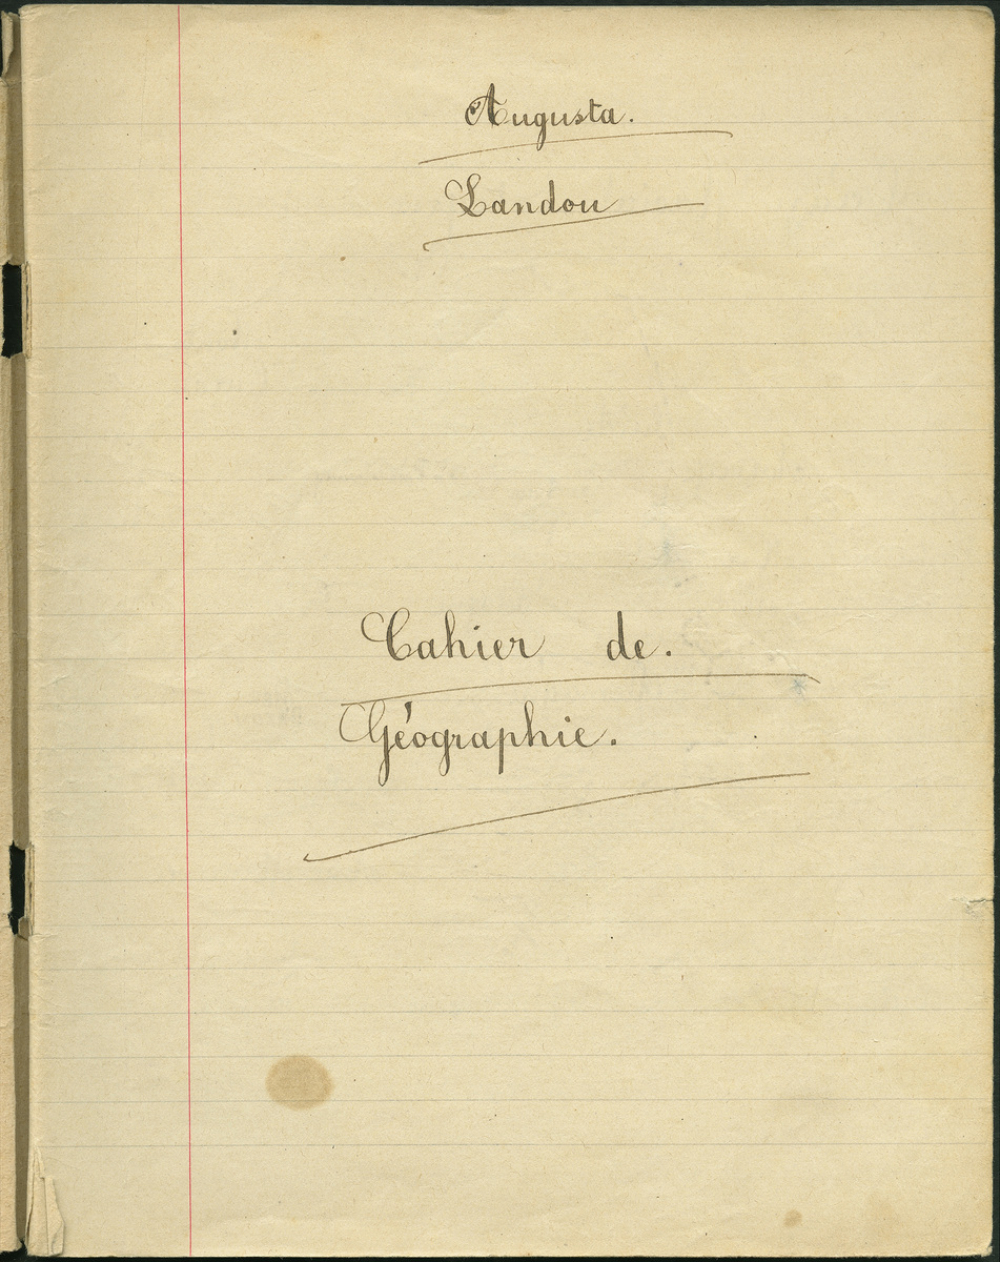 Augusta.
Landou
Cahier de.
Géographie.